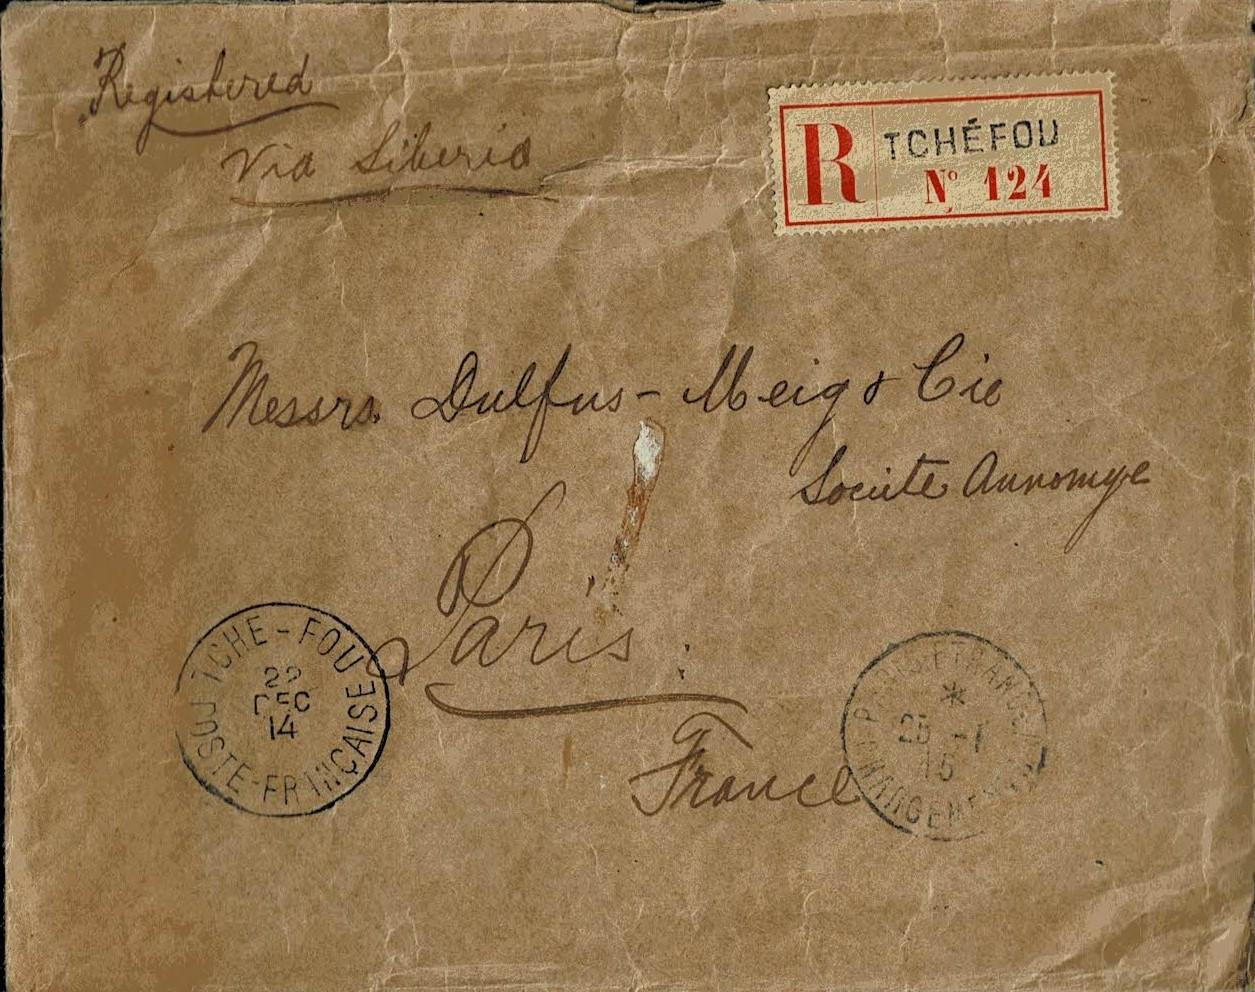 Registered
Via Siberia
R TCHÉFOU
Nº 124
Messrs. Dulfus - Meig & Cie
Societe Annomye
Paris
France
TCHE-FOU
22
DEC
14
POSTE-FRANÇAISE
PARIS-ETRANGER
*
25 -1
15
CHARGEMENTS